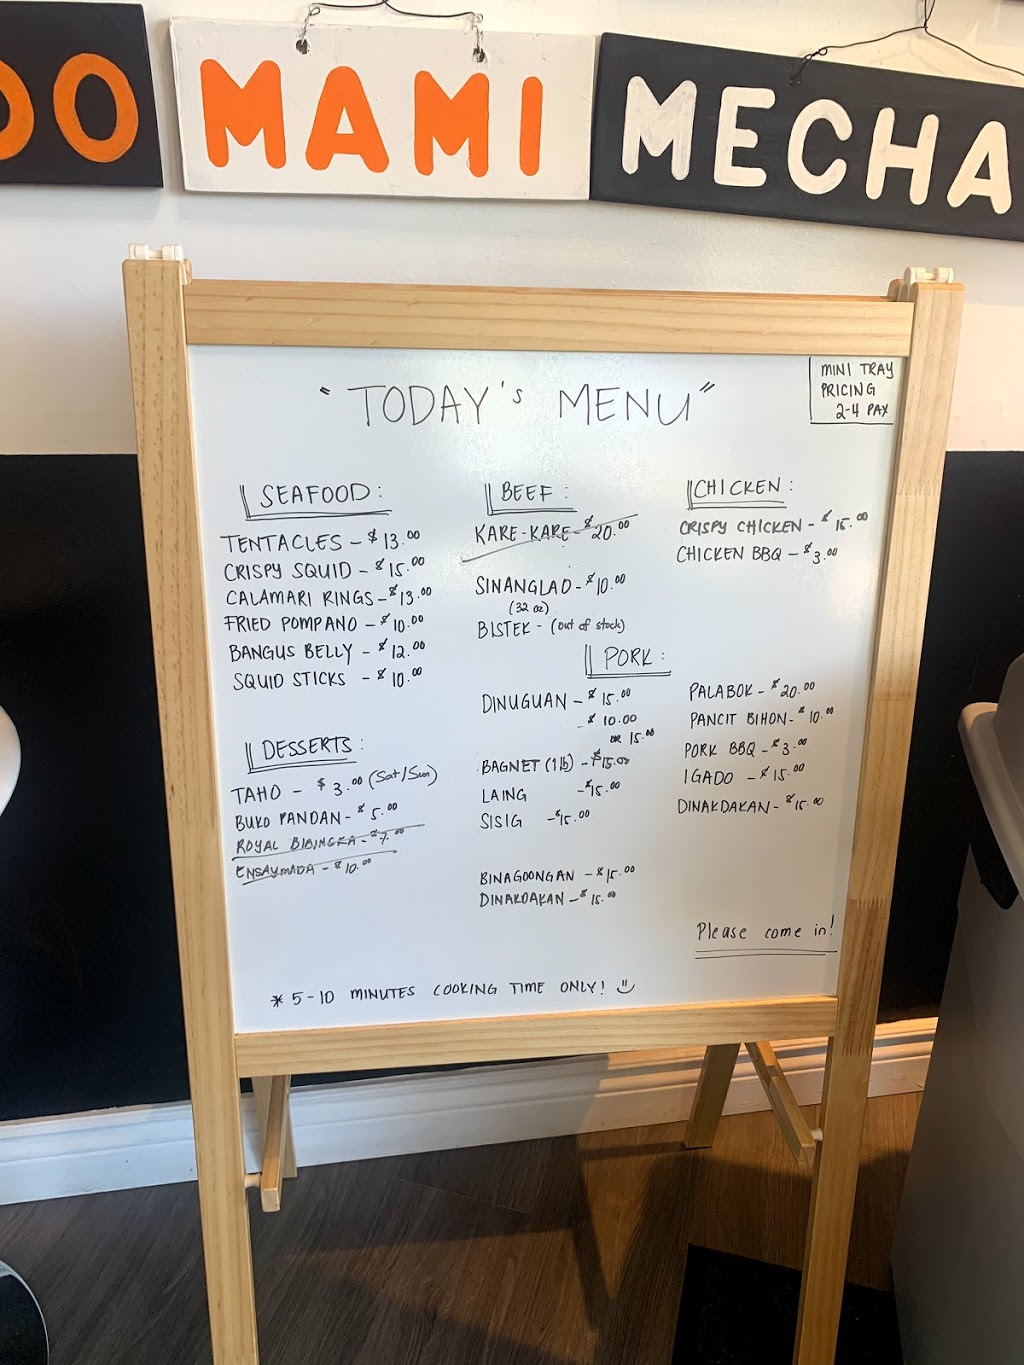 DO MAMI MECHA
MINI TRAY
PRICING
2-4 PAX
"TODAY's MENU"
SEAFOOD:
TENTACLES - $13.00
CRISPY SQUID - $15.00
CALAMARI RINGS - $13.00
FRIED POMPANO - $10.00
BANGUS BELLY - $12.00
SQUID STICKS - $10.00
DESSERTS:
TAHO - $3.00 (Sat/Sun)
BUKO PANDAN - $5.00
ROYAL BIBINGKA - $7.00
ENSAYMADA - $10.00
BEEF:
KARE-KARE - $20.00
SINANGLAO - $10.00
(32 oz)
BISTEK - (out of stock)
CHICKEN:
CRISPY CHICKEN - $15.00
CHICKEN BBQ - $3.00
PORK:
DINUGUAN - $15.00
- $10.00
OR 15.00
BAGNET (1 lb) - $15.00
LAING - $15.00
SISIG - $15.00
BINAGOONGAN - $15.00
DINAKDAKAN - $15.00
PALABOK - $20.00
PANCIT BIHON - $10.00
PORK BBQ - $3.00
IGADO - $15.00
DINAKDAKAN - $15.00
Please come in!
* 5-10 MINUTES COOKING TIME ONLY!